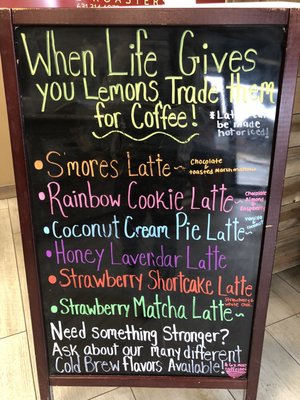 When Life Gives
you Lemons Trade them
for Coffee!
*Lattes can
be made
hot or iced!
• S'mores Latte ~ Chocolate &
toasted marshmallow
• Rainbow Cookie Latte ~ Chocolate
Almond &
Raspberry
• Coconut Cream Pie Latte ~ Vanilla &
Coconut
• Honey Lavendar Latte
• Strawberry Shortcake Latte
Strawberry &
white choc.
• Strawberry Matcha Latte ~
Need something Stronger?
Ask about our many different
Cold Brew flavors Available!